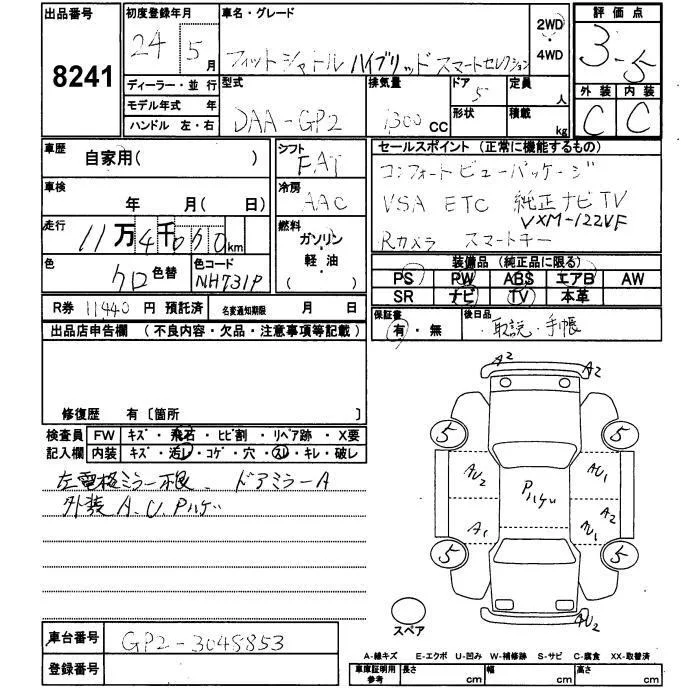 出品番号
8241
初度登録年月
24 5月
ディーラー・並行
モデル年式 年
ハンドル 左・右
車名・グレード
フィットシャトル ハイブリッド スマートセレクション
2WD
・
4WD
型式
DAA-GP2
排気量
1300 CC
ドア
5
形状
定員
人
積載
kg
評価点
3.5
外装
C
内装
C
車歴
自家用( )
車検
年 月( 日)
走行
11万4千070km
色
クロ 色替
色コード
NH731P
シフト
FAT
冷房
AAC
燃料
ガソリン
・
軽・油
( )
セールスポイント(正常に機能するもの)
コンフォートビューパッケージ
VSA ETC 純正ナビTV
VXM-122VF
Rカメラ スマートキー
装備品(純正品に限る)
PS PW ABS エアB AW
SR ナビ TV 本革
保証書
有・無
後日品
取説・手帳
R券 11440 円 預託済
名変通知期限 月 日
出品店申告欄(不良内容・欠品・注意事項等記載)
修復歴 有〔箇所 〕
検査員
記入欄
FW キズ・飛石・ヒビ割・リペア跡・X要
内装 キズ・汚レ・コゲ・穴・スレ・キレ・破レ
ドアミラーA
外装 A.U Pハゲ
A2
A2
5
5
AU2
Pハゲ
AU1
A2
A1
AU1
5
5
AU2
スペア
車台番号
GP2-3048853
登録番号
A-線キズ E-エクボ U-凹み W-補修跡 S-サビ C-腐食 XX-取替済
車庫証明用
参考
長さ cm
幅 cm
高さ cm